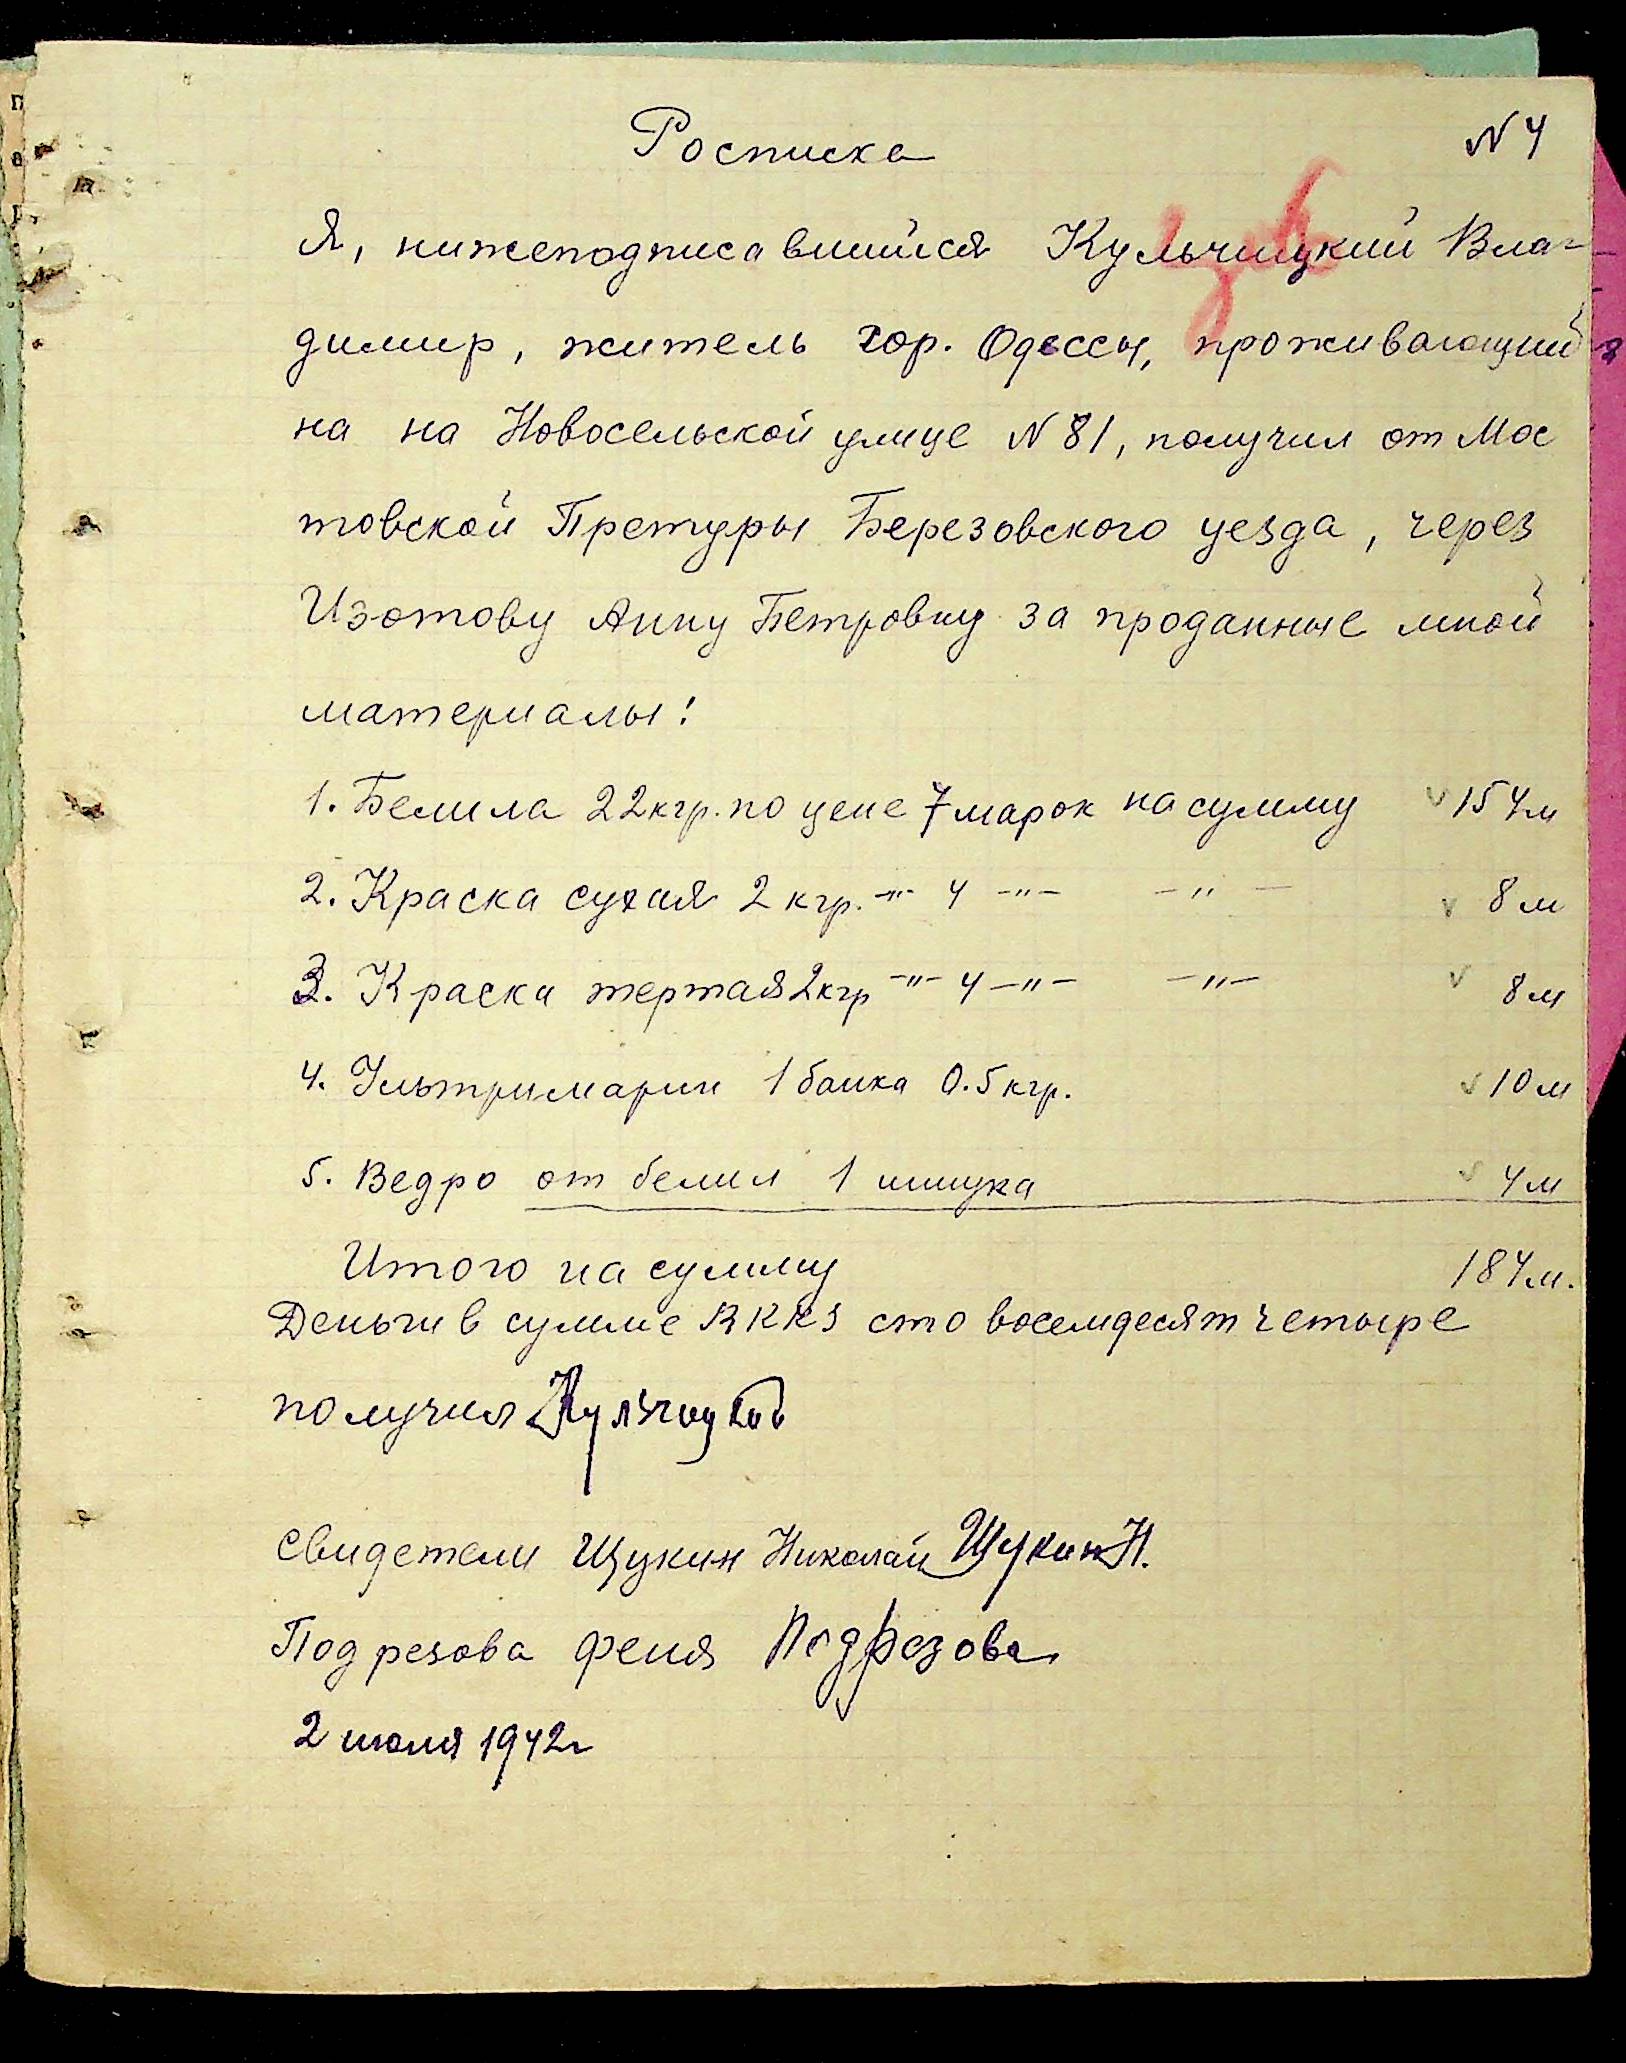 Росписка
N 4
Я, нижеподписавшийся Кульчицкий Вла-
димир, житель гор. Одессы, проживающий
на на Новосельской улице N 81, получил от Мос
товской Претуры Березовского уезда, через
Изотову Анну Петровну за проданные мной
материалы:
1. Белила 22 кгр. по цене 7 марок на сумму 154 м
2. Краска сухая 2 кгр. -"- 4 -"- -"- 8 м
3. Краска тертая 2 кгр -"- 4 -"- -"- 8 м
4. Ультримарин 1 банка 0.5 кгр. 10 м
5. Ведро от белил 1 штука 4 м
Итого на сумму 184 м.
Деньги в сумме RKKS сто восемдесят четыре
получил Кульчицкий
Свидетели Щукин Николай Щукин Н.
Подрезова Феня Подрезова
2 июля 1942 г